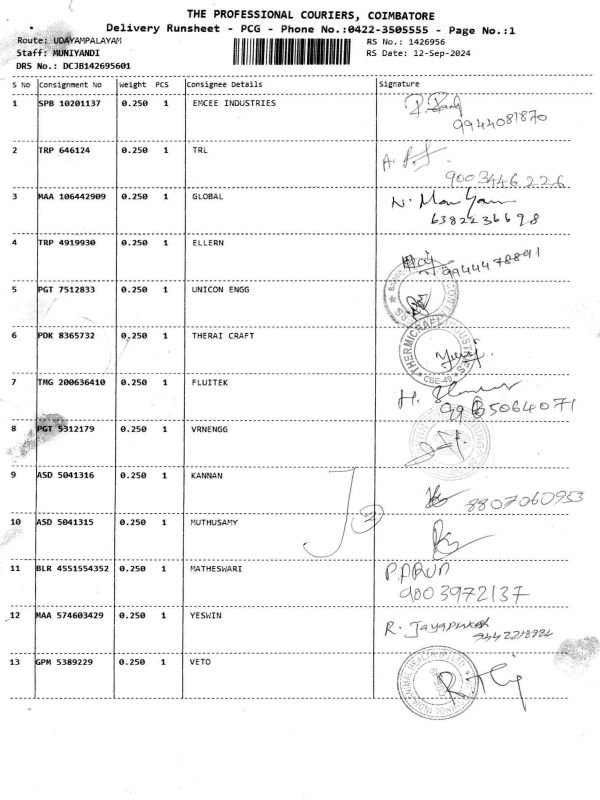 THE PROFESSIONAL COURIERS, COIMBATORE
Delivery Runsheet - PCG - Phone No.:0422-3505555 - Page No.:1
Route: UDAYAMPALAYAM RS No.: 1426956
Staff: MUNIYANDI RS Date: 12-Sep-2024
DRS No.: DCJB142695601
S No Consignment No Weight PCS Consignee Details Signature
1 SPB 10201137 0.250 1 EMCEE INDUSTRIES
9944081870
2 TRP 646124 0.250 1 TRL
9003446226
3 MAA 106442909 0.250 1 GLOBAL
6382236698
4 TRP 4919930 0.250 1 ELLERN
9944478891
5 PGT 7512833 0.250 1 UNICON ENGG
6 PDK 8365732 0.250 1 THERAI CRAFT
CBE-49
7 TMG 200636410 0.250 1 FLUITEK
8 PGT 5312179 0.250 1 VRNENGG
9 ASD 5041316 0.250 1 KANNAN
8807060953
10 ASD 5041315 0.250 1 MUTHUSAMY
11 BLR 4551554352 0.250 1 MATHESWARI P.ARUN
9003972137
12 MAA 574603429 0.250 1 YESWIN
R. Jayaprakash
13 GPM 5389229 0.250 1 VETO